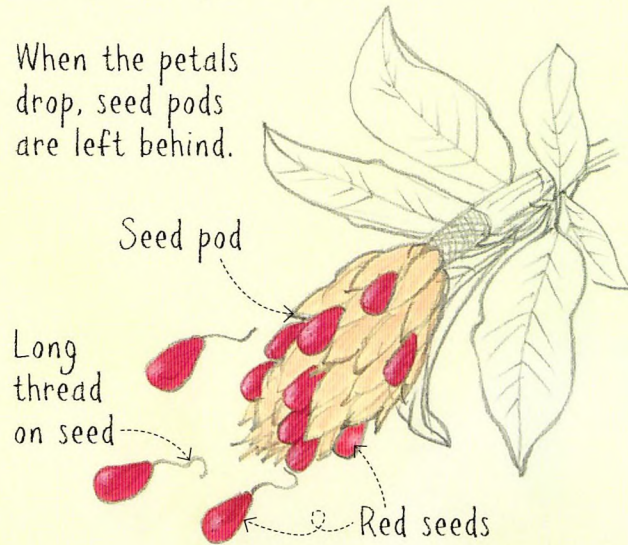 When the petals
drop, seed pods
are left behind.
Seed pod
Long
thread
on seed
Red seeds